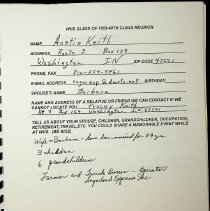 WHS CLASS OF 1959 40TH CLASS REUNION
NAME Austin Keith
ADDRESS Route 3 Box 158
Washington IN ZIP CODE 47501
PHONE, FAX, 812-254-5461
E-MAIL ADDRESS @dmrtc.net BIRTHDAY
SPOUSE'S NAME Barbara
NAME AND ADDRESS OF A RELATIVE OR FRIEND WE CAN CONTACT IF WE
CANNOT LOCATE YOU Keith
Box Washington IN 47501
TELL US ABOUT YOUR SPOUSE, CHILDREN, GRANDCHILDREN, OCCUPATION,
RETIREMENT, TRAVEL, ETC. YOU COULD SHARE A MEMORABLE EVENT WHILE
AT WHS. (BE NICE)
Wife - Barbara - have been married for 39 yrs
3 children
6 grandchildren
Farmer and Truck Owner - Operator
Express Inc